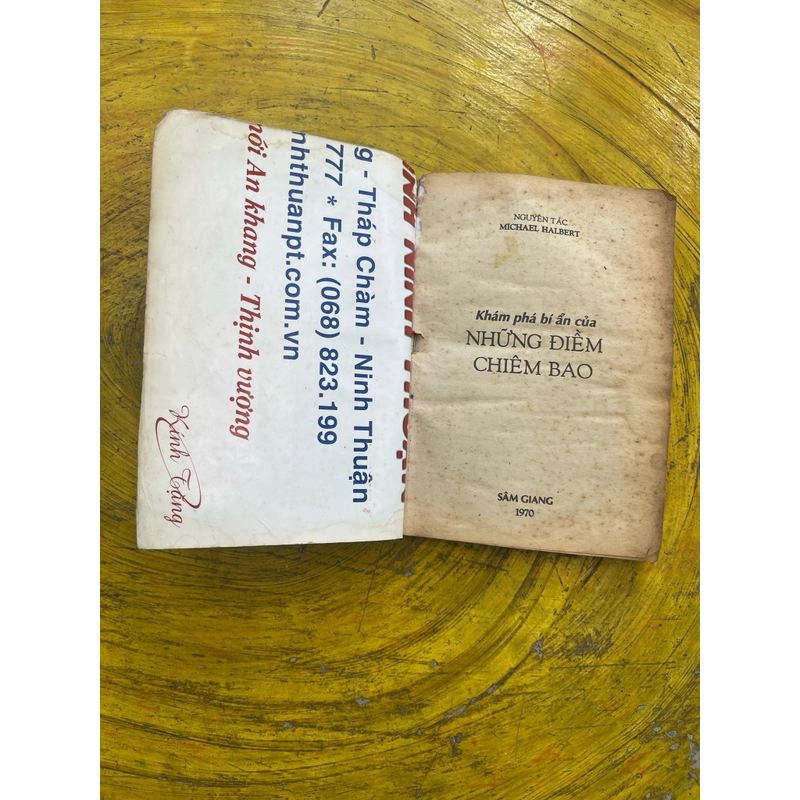 g - Tháp Chàm - Ninh Thuận
777 * Fax: (068) 823.199
nhthuanpt.com.vn
mới An khang - Thịnh vượng
Kính Tặng
NGUYÊN TÁC
MICHAEL HALBERT
Khám phá bí ẩn của
NHỮNG ĐIỀM
CHIÊM BAO
SÂM GIANG
1970